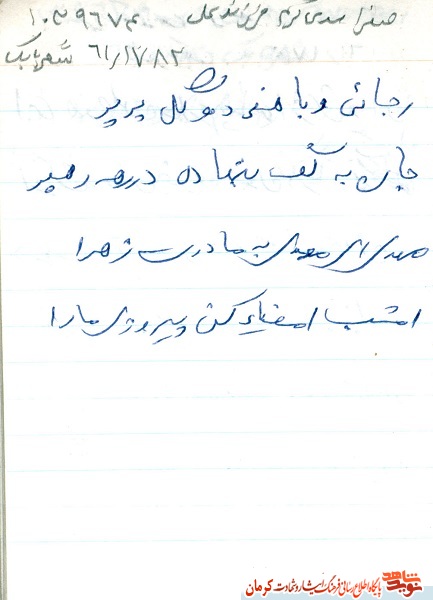 صغرا اسدی کرم عزیز شد محلی ۱۰۳۹۶۷۴
۶۱/۱۷۸۲ شهربابک
رجائی و باهنر دو گل پرپر
جان به کف نهاده در ره رهبر
مهدی ای مهدی به مادرت زهرا
امشب امضاء کن پیروزی ما را
نوید شاهد
پایگاه اطلاع رسانی فرهنگ ایثار و شهادت کرمان